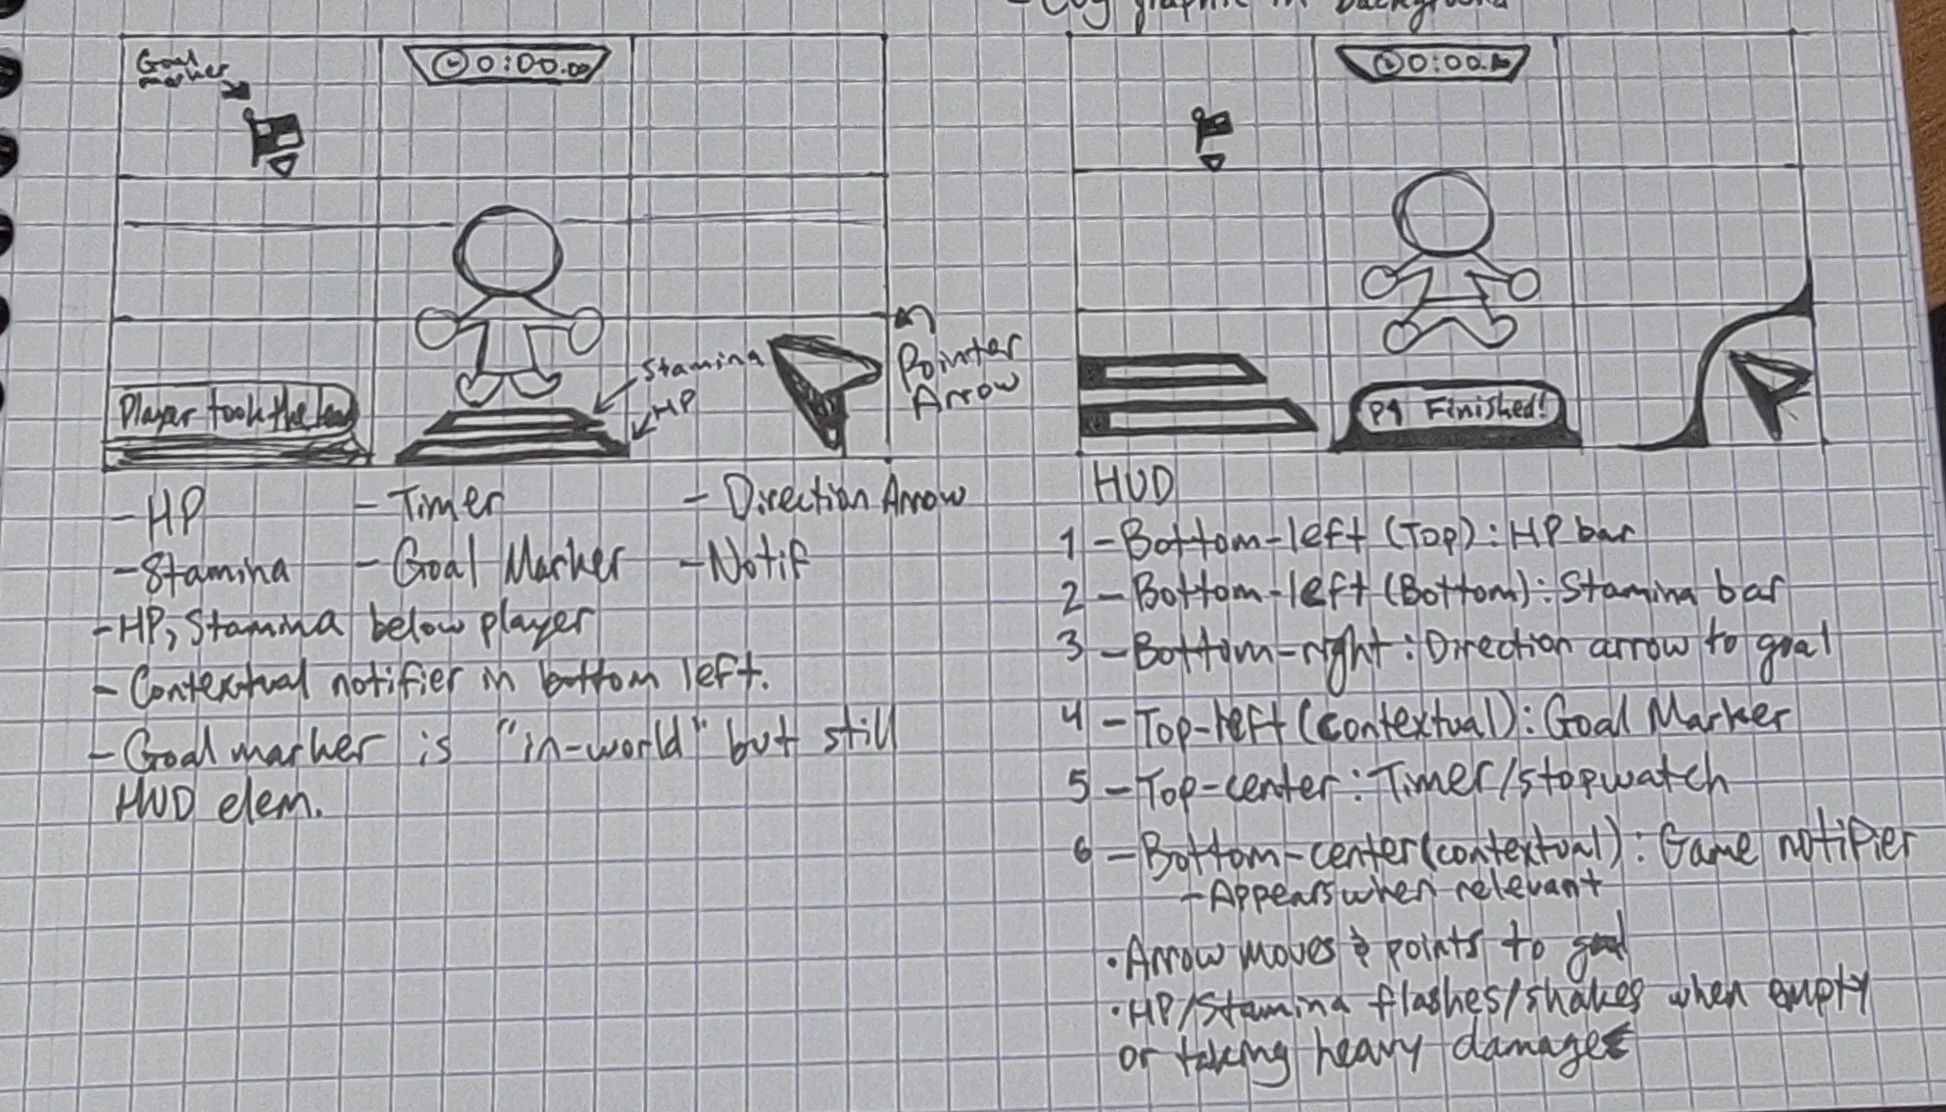 graphic in background
Goal
marker
0:00.00
Stamina
HP
Pointer
Arrow
Player took the lead
- HP
- Timer
- Direction Arrow
- Stamina
- Goal Marker
- Notif
- HP, Stamina below player
- Contextual notifier in bottom left.
- Goal marker is "in-world" but still
HUD elem.
0:00.
P1 Finished!
HUD
1 - Bottom-left (Top): HP bar
2 - Bottom-left (Bottom): Stamina bar
3 - Bottom-right: Direction arrow to goal
4 - Top-left (contextual): Goal Marker
5 - Top-center: Timer/stopwatch
6 - Bottom-center (contextual): Game notifier
- Appears when relevant
• Arrow moves & points to goal
• HP/Stamina flashes/shakes when empty
or taking heavy damage